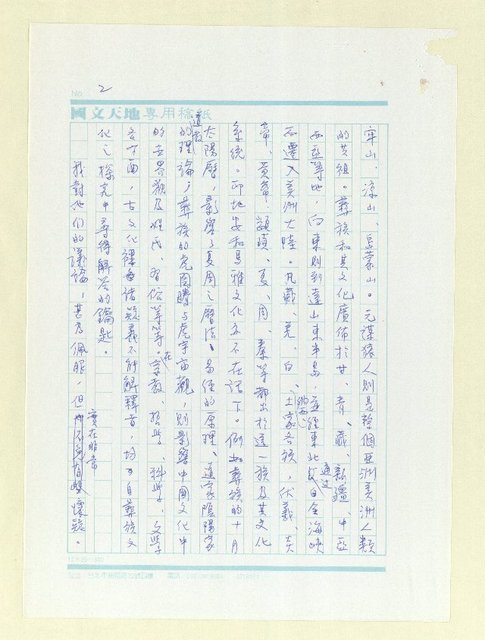 No. 2
國文天地專用稿紙
牢山、涼山、烏蒙山。元謀猿人則是整個亞洲美洲人類
的共祖。彝族和其文化廣佈於甘、青、藏、新疆、中亞
西亞等地，向東則到達山東半島，並經東北通過白令海峽
而遷入美洲大陸。凡藏、羌、白、納西、土家各族，伏羲、炎
帝、黃帝、顓頊、夏、周、秦等都出於這一族及其文化
系統。印地安和馬雅文化亦不在話下。例如彝族的十月
太陽曆，影響了夏周之曆法；易經的原理、道家陰陽家道教
的理論；彝族的虎圖騰與虎宇宙觀，則影響中國文化中
的世界觀及姓氏、習俗等等。在宗教、哲學、科學、文學
各方面，古文化裡面諸疑義不能解釋者，均可自彝族文
化之探究中尋得解答的鑰匙。
我對他們的議論，甚為佩服，但實在非常懷疑。